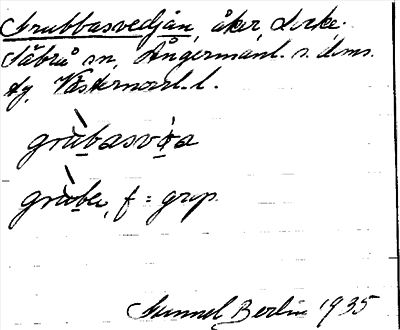 Grubbasvedjan, åker,
Säbrå sn, Ångermanl. s. doms.
Västernorrl. l.
grùbasvǫ̀a
grùbe, f = grop.
Gunnel Berlin 1935